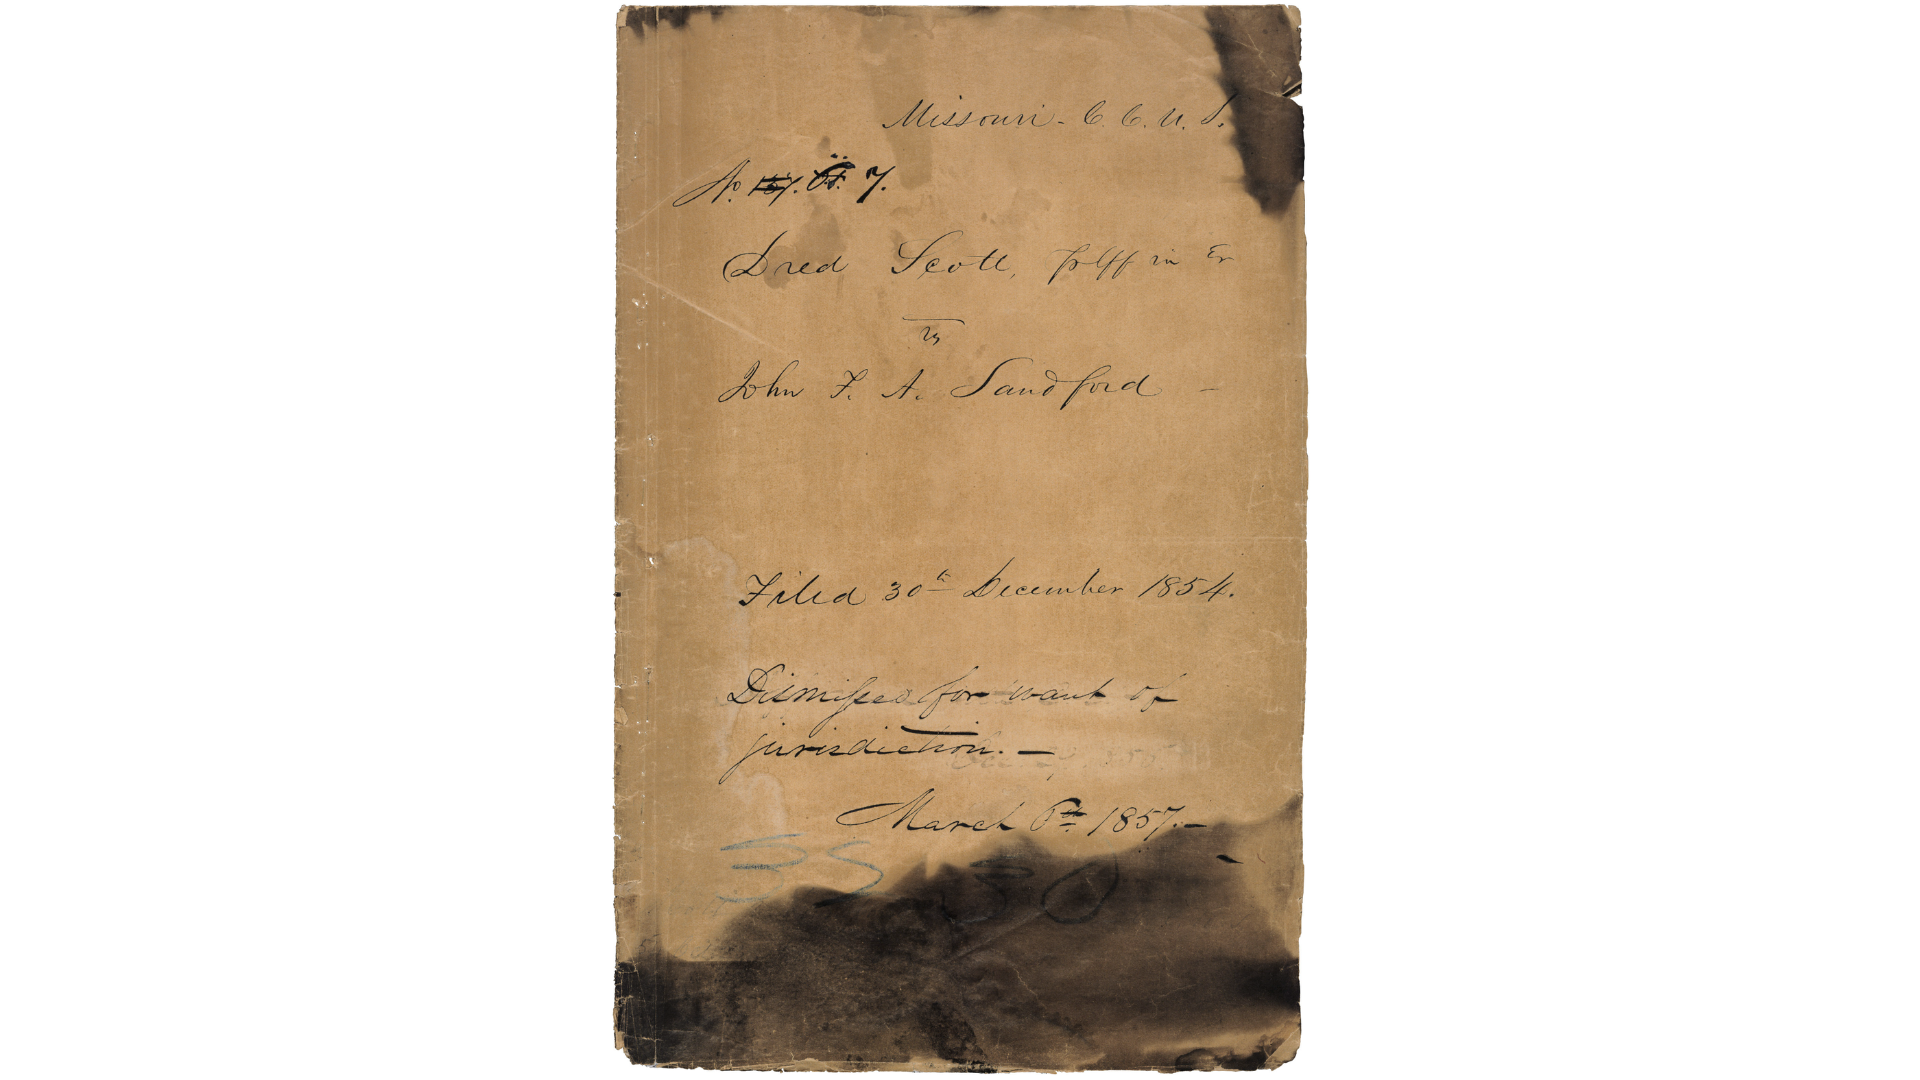 Missouri - C. C. U. S.
No. 137. 61. 7.
Dred Scott, Plff in Er
vs
John F. A. Sandford -
Filed 30th December 1854.
Dismissed for want of
jurisdiction. -
March 6th 1857. -
3 5 3 0